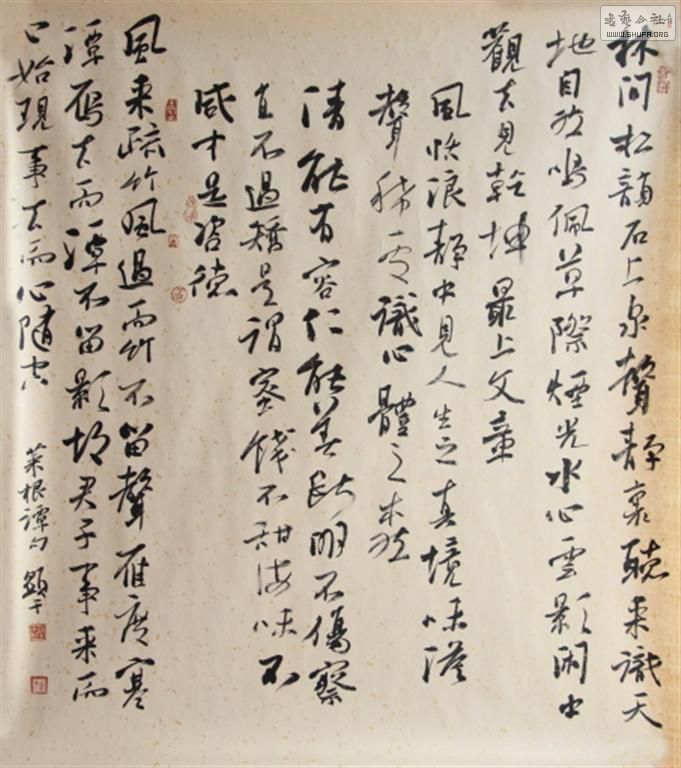 林间松韻石上泉聲静裏聽来識天
地自然鳴佩草際煙光水心雲影闲中
觀去見乾坤最上文章
風恬浪静中見人生之真境味淡
聲稀處識心體之本然
清能有容仁能善断明不傷察
直不過矯是谓蜜饯不甜海味不
咸才是懿德
風来疏竹風過而竹不留聲雁度寒
潭雁去而潭不留影故君子事来而
心始現事去而心随空
菜根谭句
书艺公社
WWW.SHUFA.ORG